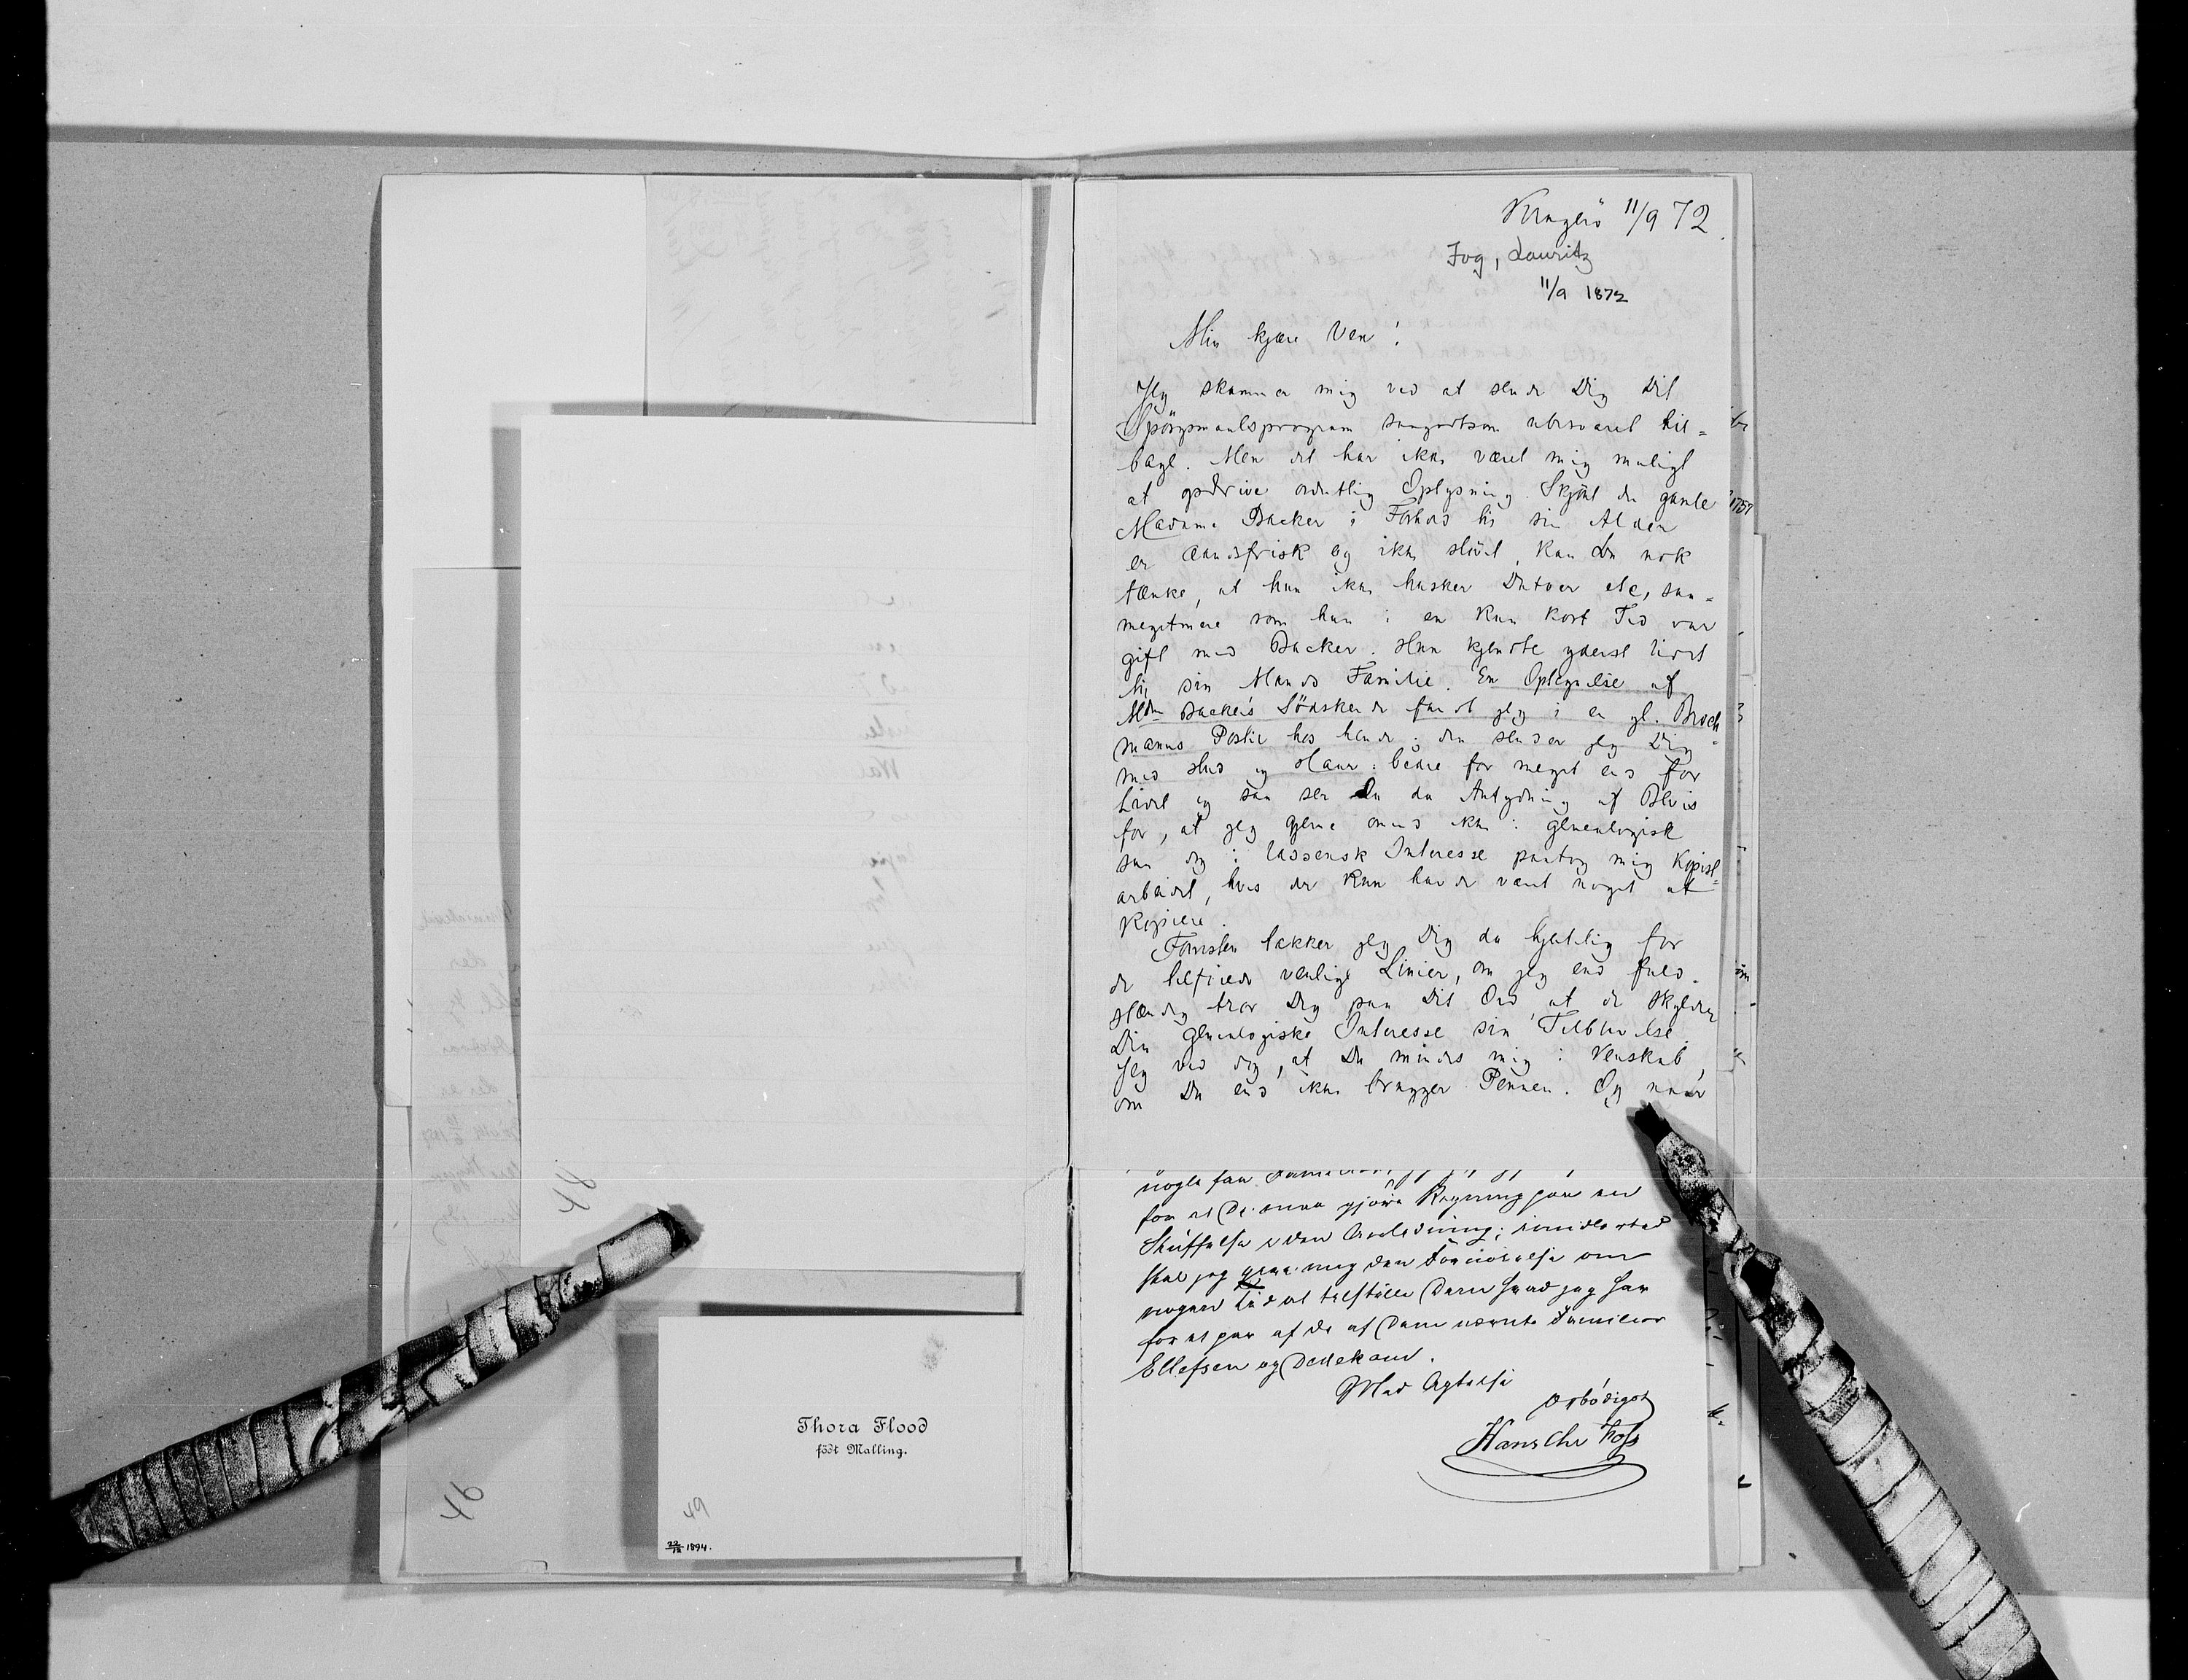 Thora Flood
født Malling.
49
22/12 1894.
Kragerö 11/9 72.
Fog, Lauritz
11/9 1872
Min kjære Ven!
Jeg skammer mig ved at sende Dig Dit
Spörgsmaalsprogram saagodtsom ubesvaret til=
bage. Men det har ikke været mig muligt
at opdrive ordentlig Oplysning. Skjönt den gamle
Madame Backer i Forhold til sin Alder
er aandsfrisk og ikke slövet, kan Du nok
tænke, at hun ikke husker Datoer etc, saa=
megetmere som hun i en kun kort Tid var
gift med Backer. Hun kjendte yderst lidet
til sin Mands Familie. En Optegnelse af
Mdm Backer's Södskende fandt jeg i en gl. Broch=
manns Postil hos hende; den sender jeg Dig
med Hud og Haar: bedre for meget end for
lidet og saa ser Du da Antydning af Bevis
for, at jeg gjerne om ikke i genealogisk
saa dog i Lassensk Interesse paatog mig Kopist=
arbeidet, hvis der kun havde været noget at
kopiere.
Forresten takker jeg Dig da hjertelig for
de tilföiede venlige Linier, om jeg end fuld=
stændig tror Dig paa Dit Ord, at de skylder
Din genealogiske Interesse sin Tilblivelse.
Jeg ved dog, at Du mindes mig i Venskab,
om Du end ikke bruger Pennen. Og naar
for at De maa gjöre Regning paa en
Skuffelse i den Anledning; imidlertid
skal jeg give mig den Fornöielse om
nogen tid at tilstille Dem hvad jeg har
for et par af de af Dem nævnte Familier
Ellefsen og Dedekam.
Med Agtelse
ærbödigst
Hans Chr Foss